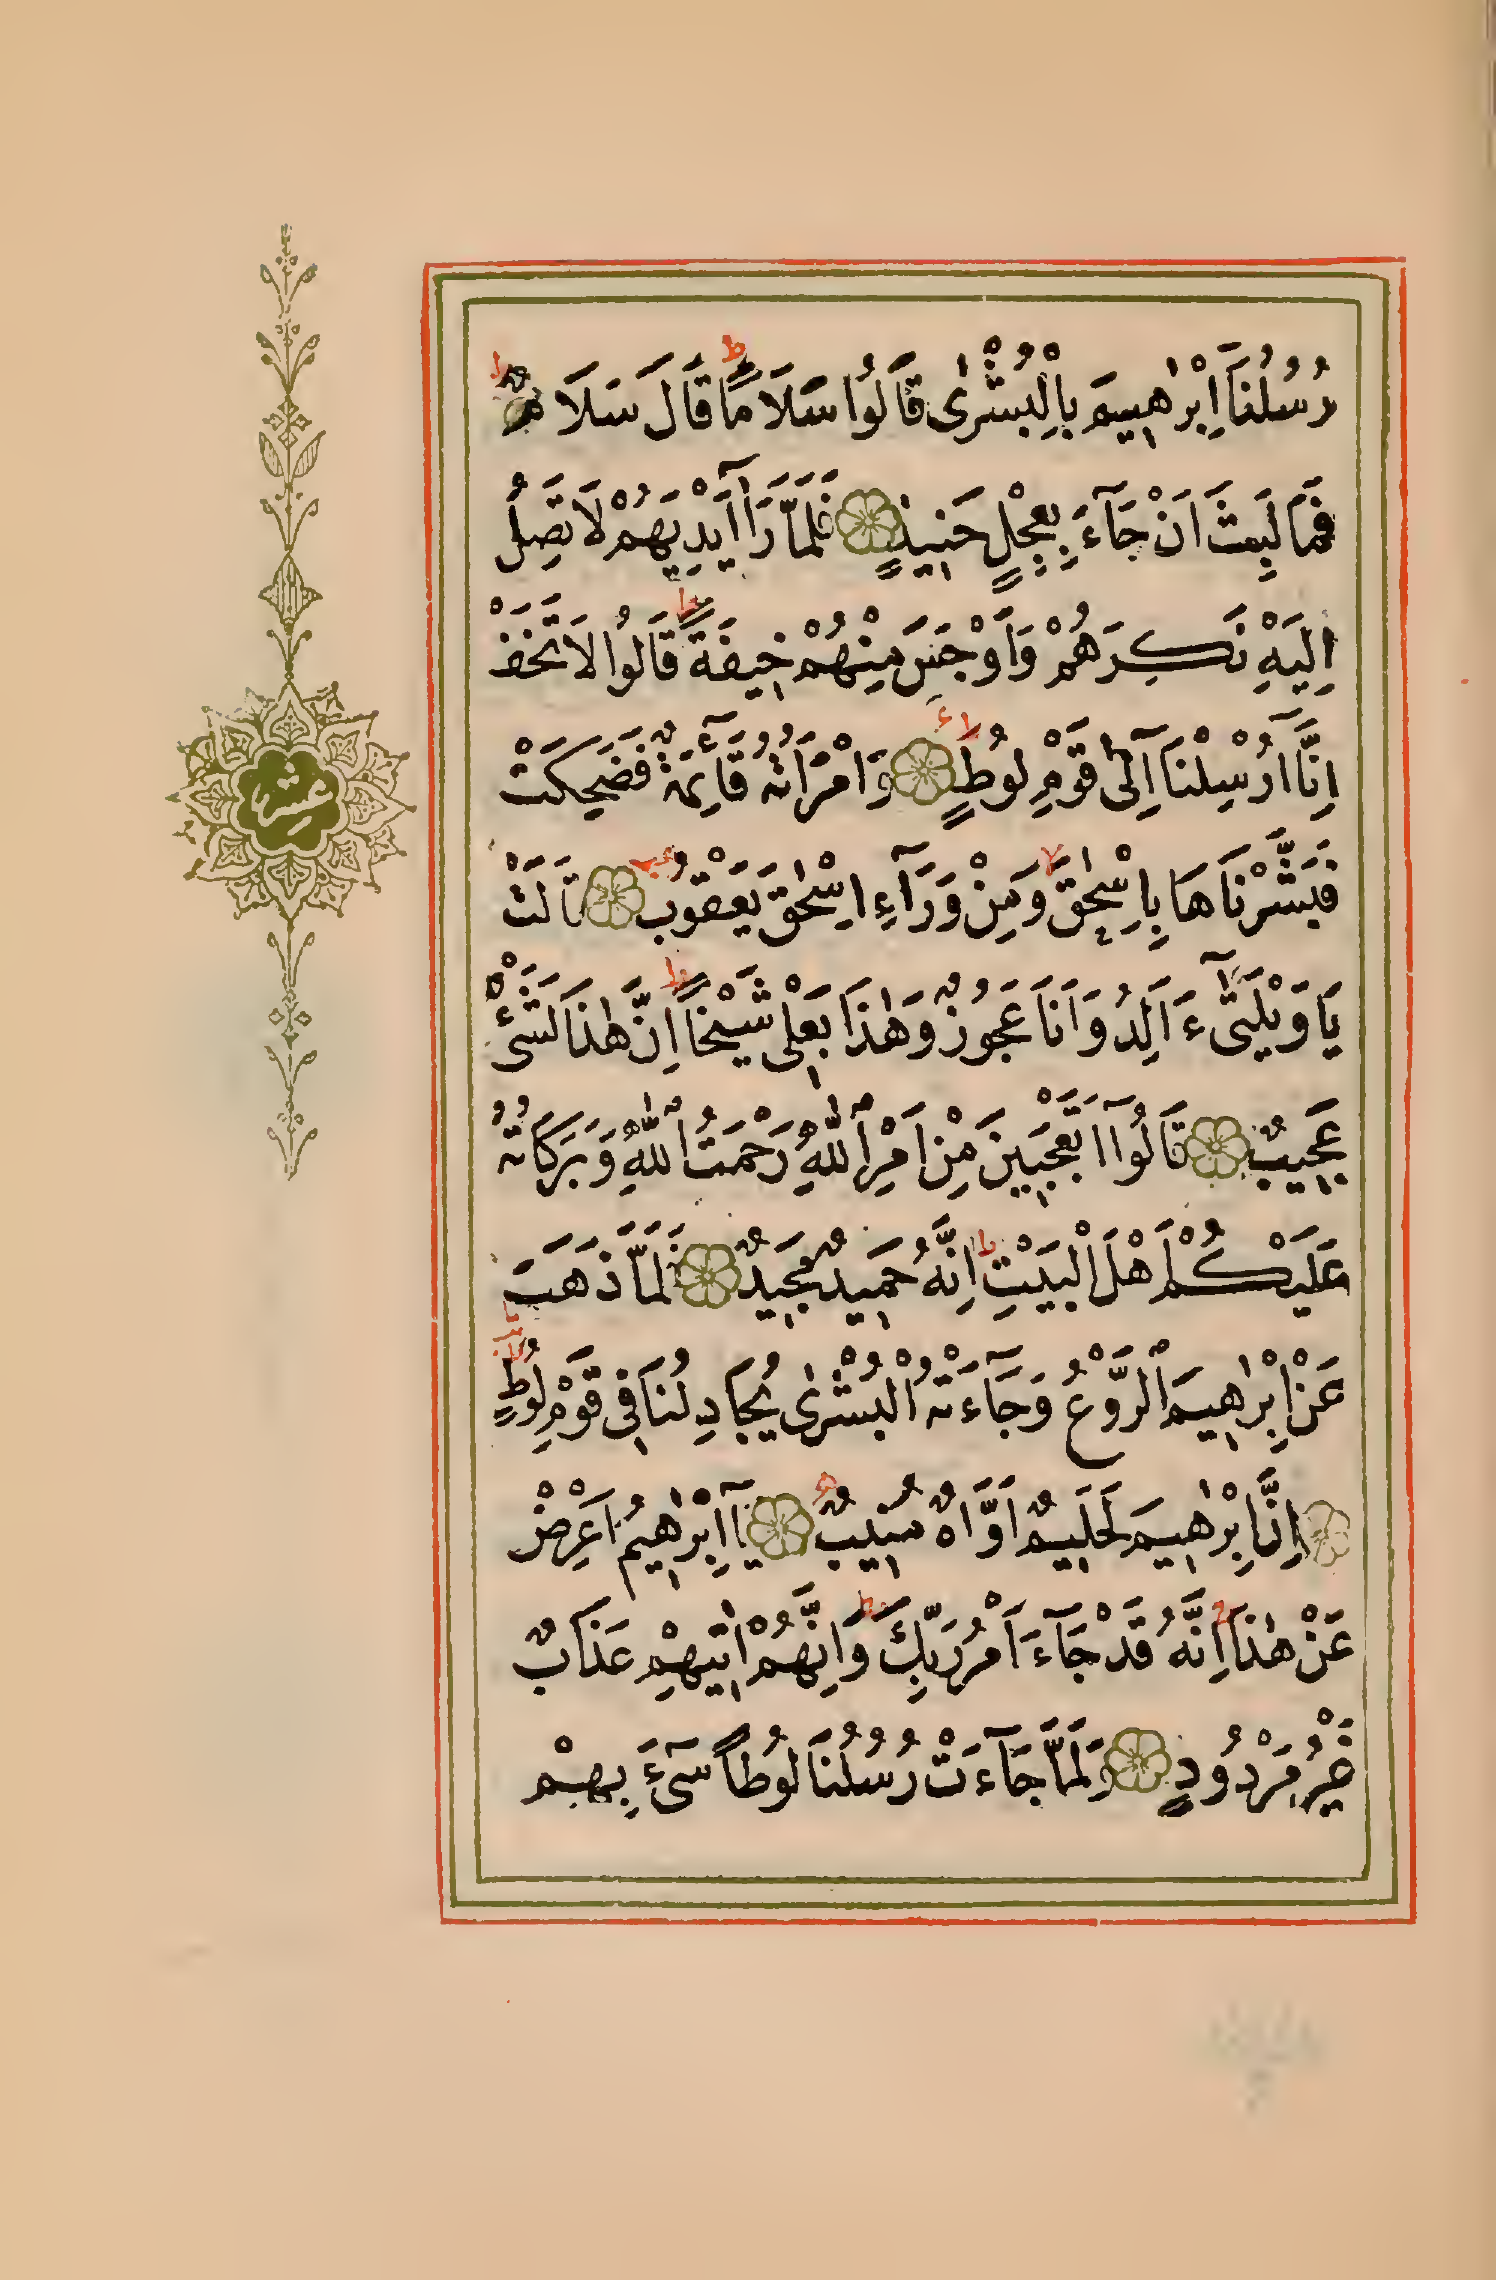 رُسُلُنَآ اِبْرٰهٖيمَ بِالْبُشْرٰى قَالُوا سَلَامًاؕ قَالَ سَلَامٌؕ
فَمَا لَبِثَ اَنْ جَآءَ بِعِجْلٍ حَنٖيذٍ فَلَمَّا رَآٰ اَيْدِيَهُمْ لَا تَصِلُ
اِلَيْهِ نَكِرَهُمْ وَاَوْجَسَ مِنْهُمْ خٖيفَةًؕ قَالُوا لَا تَخَفْ
اِنَّآ اُرْسِلْنَآ اِلٰى قَوْمِ لُوطٍؕ وَامْرَاَتُهُ قَآئِمَةٌ فَضَحِكَتْ
فَبَشَّرْنَاهَا بِاِسْحٰقَۙ وَمِنْ وَرَآءِ اِسْحٰقَ يَعْقُوبَ قَالَتْ
يَا وَيْلَتٰٓى ءَاَلِدُ وَاَنَا عَجُوزٌ وَهٰذَا بَعْلٖى شَيْخًاؕ اِنَّ هٰذَا لَشَىْءٌ
عَجٖيبٌ قَالُوٓا اَتَعْجَبٖينَ مِنْ اَمْرِ اللّٰهِ رَحْمَتُ اللّٰهِ وَبَرَكَاتُهُ
عَلَيْكُمْ اَهْلَ الْبَيْتِؕ اِنَّهُ حَمٖيدٌ مَجٖيدٌ فَلَمَّا ذَهَبَ
عَنْ اِبْرٰهٖيمَ الرَّوْعُ وَجَآءَتْهُ الْبُشْرٰى يُجَادِلُنَا فٖى قَوْمِ لُوطٍؕ
اِنَّ اِبْرٰهٖيمَ لَحَلٖيمٌ اَوَّاهٌ مُنٖيبٌ يَآ اِبْرٰهٖيمُ اَعْرِضْ
عَنْ هٰذَاۚ اِنَّهُ قَدْ جَآءَ اَمْرُ رَبِّكَۚ وَاِنَّهُمْ اٰتٖيهِمْ عَذَابٌ
غَيْرُ مَرْدُودٍ وَلَمَّا جَآءَتْ رُسُلُنَا لُوطًا سٖٓىءَ بِهِمْ